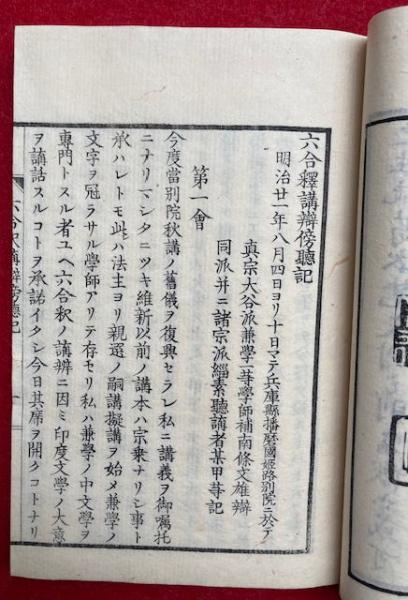 六合釋講辯傍聽記
明治廿一年八月四日ヨリ十日マテ兵庫縣播磨國姬路別院ニ於テ
眞宗大谷派兼學二等學師補南條文雄辯
同派并ニ諸宗派緇素聽講者某甲等記
第一會
今度當別院秋講ノ舊儀ヲ復興セラレ私ニ講義ヲ御囑托
ニナリマシタニツキ維新以前ノ講本ハ宗乘ナリシ事ト
承ハレトモ此ハ法主ヨリ親選ノ嗣講擬講ヲ始メ兼學ノ
文字ヲ冠ラサル學師アリテ存セリ私ハ兼學ノ中文學ヲ
專門トスル者ユヘ六合釋ノ講辯ニ因ミ印度文學ノ大意
ヲ講話スルコトヲ承諾イタシ今日其席ヲ開クコトナリ
六合釈講辯傍聽記
一